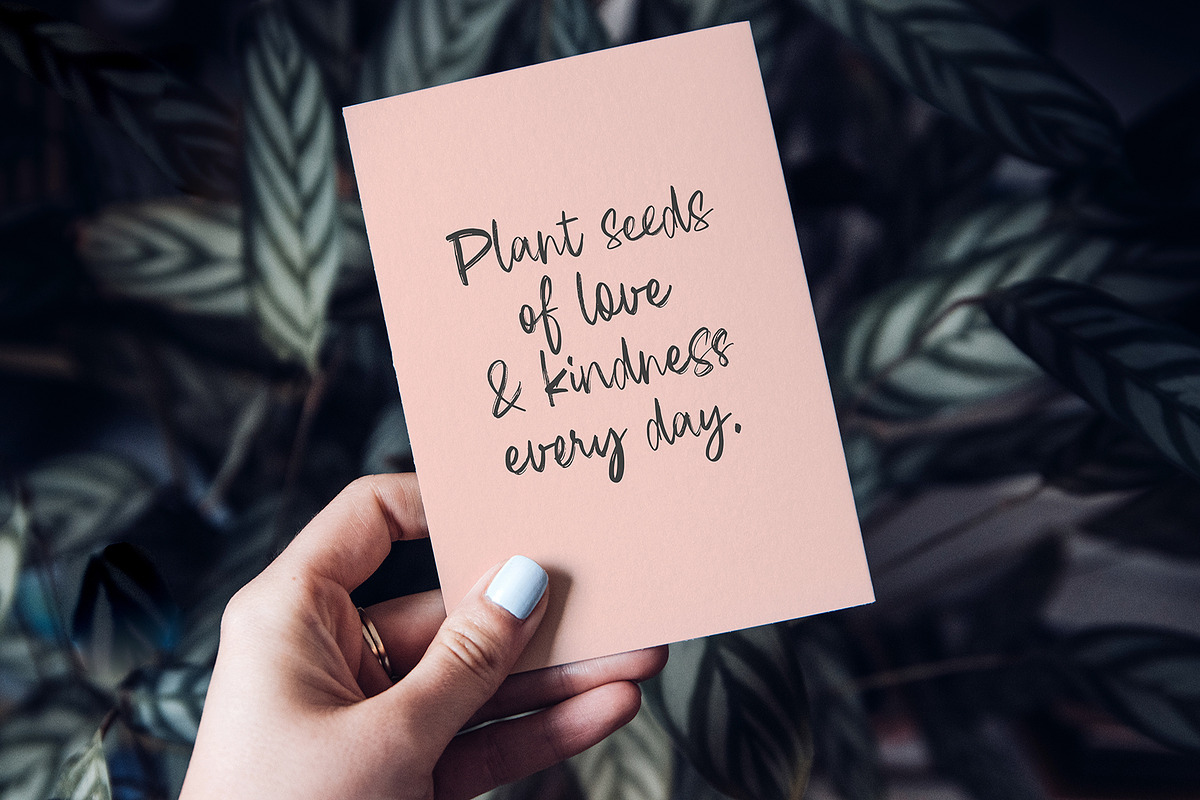 Plant seeds
of love
& kindness
every day.